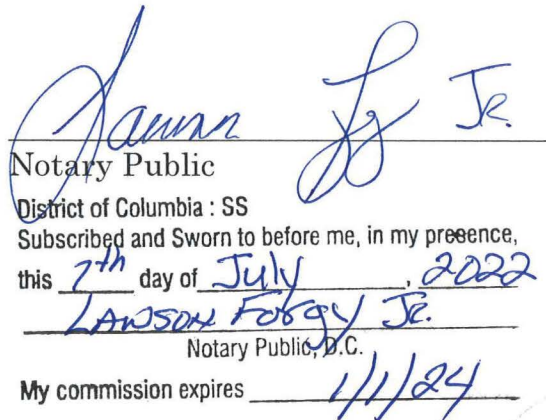 Lawson Jr.
Notary Public
District of Columbia : SS
Subscribed and Sworn to before me, in my presence,
this 7th day of July, 2022
LAWSON Forgy Jr.
Notary Public, D.C.
My commission expires 1/1/24